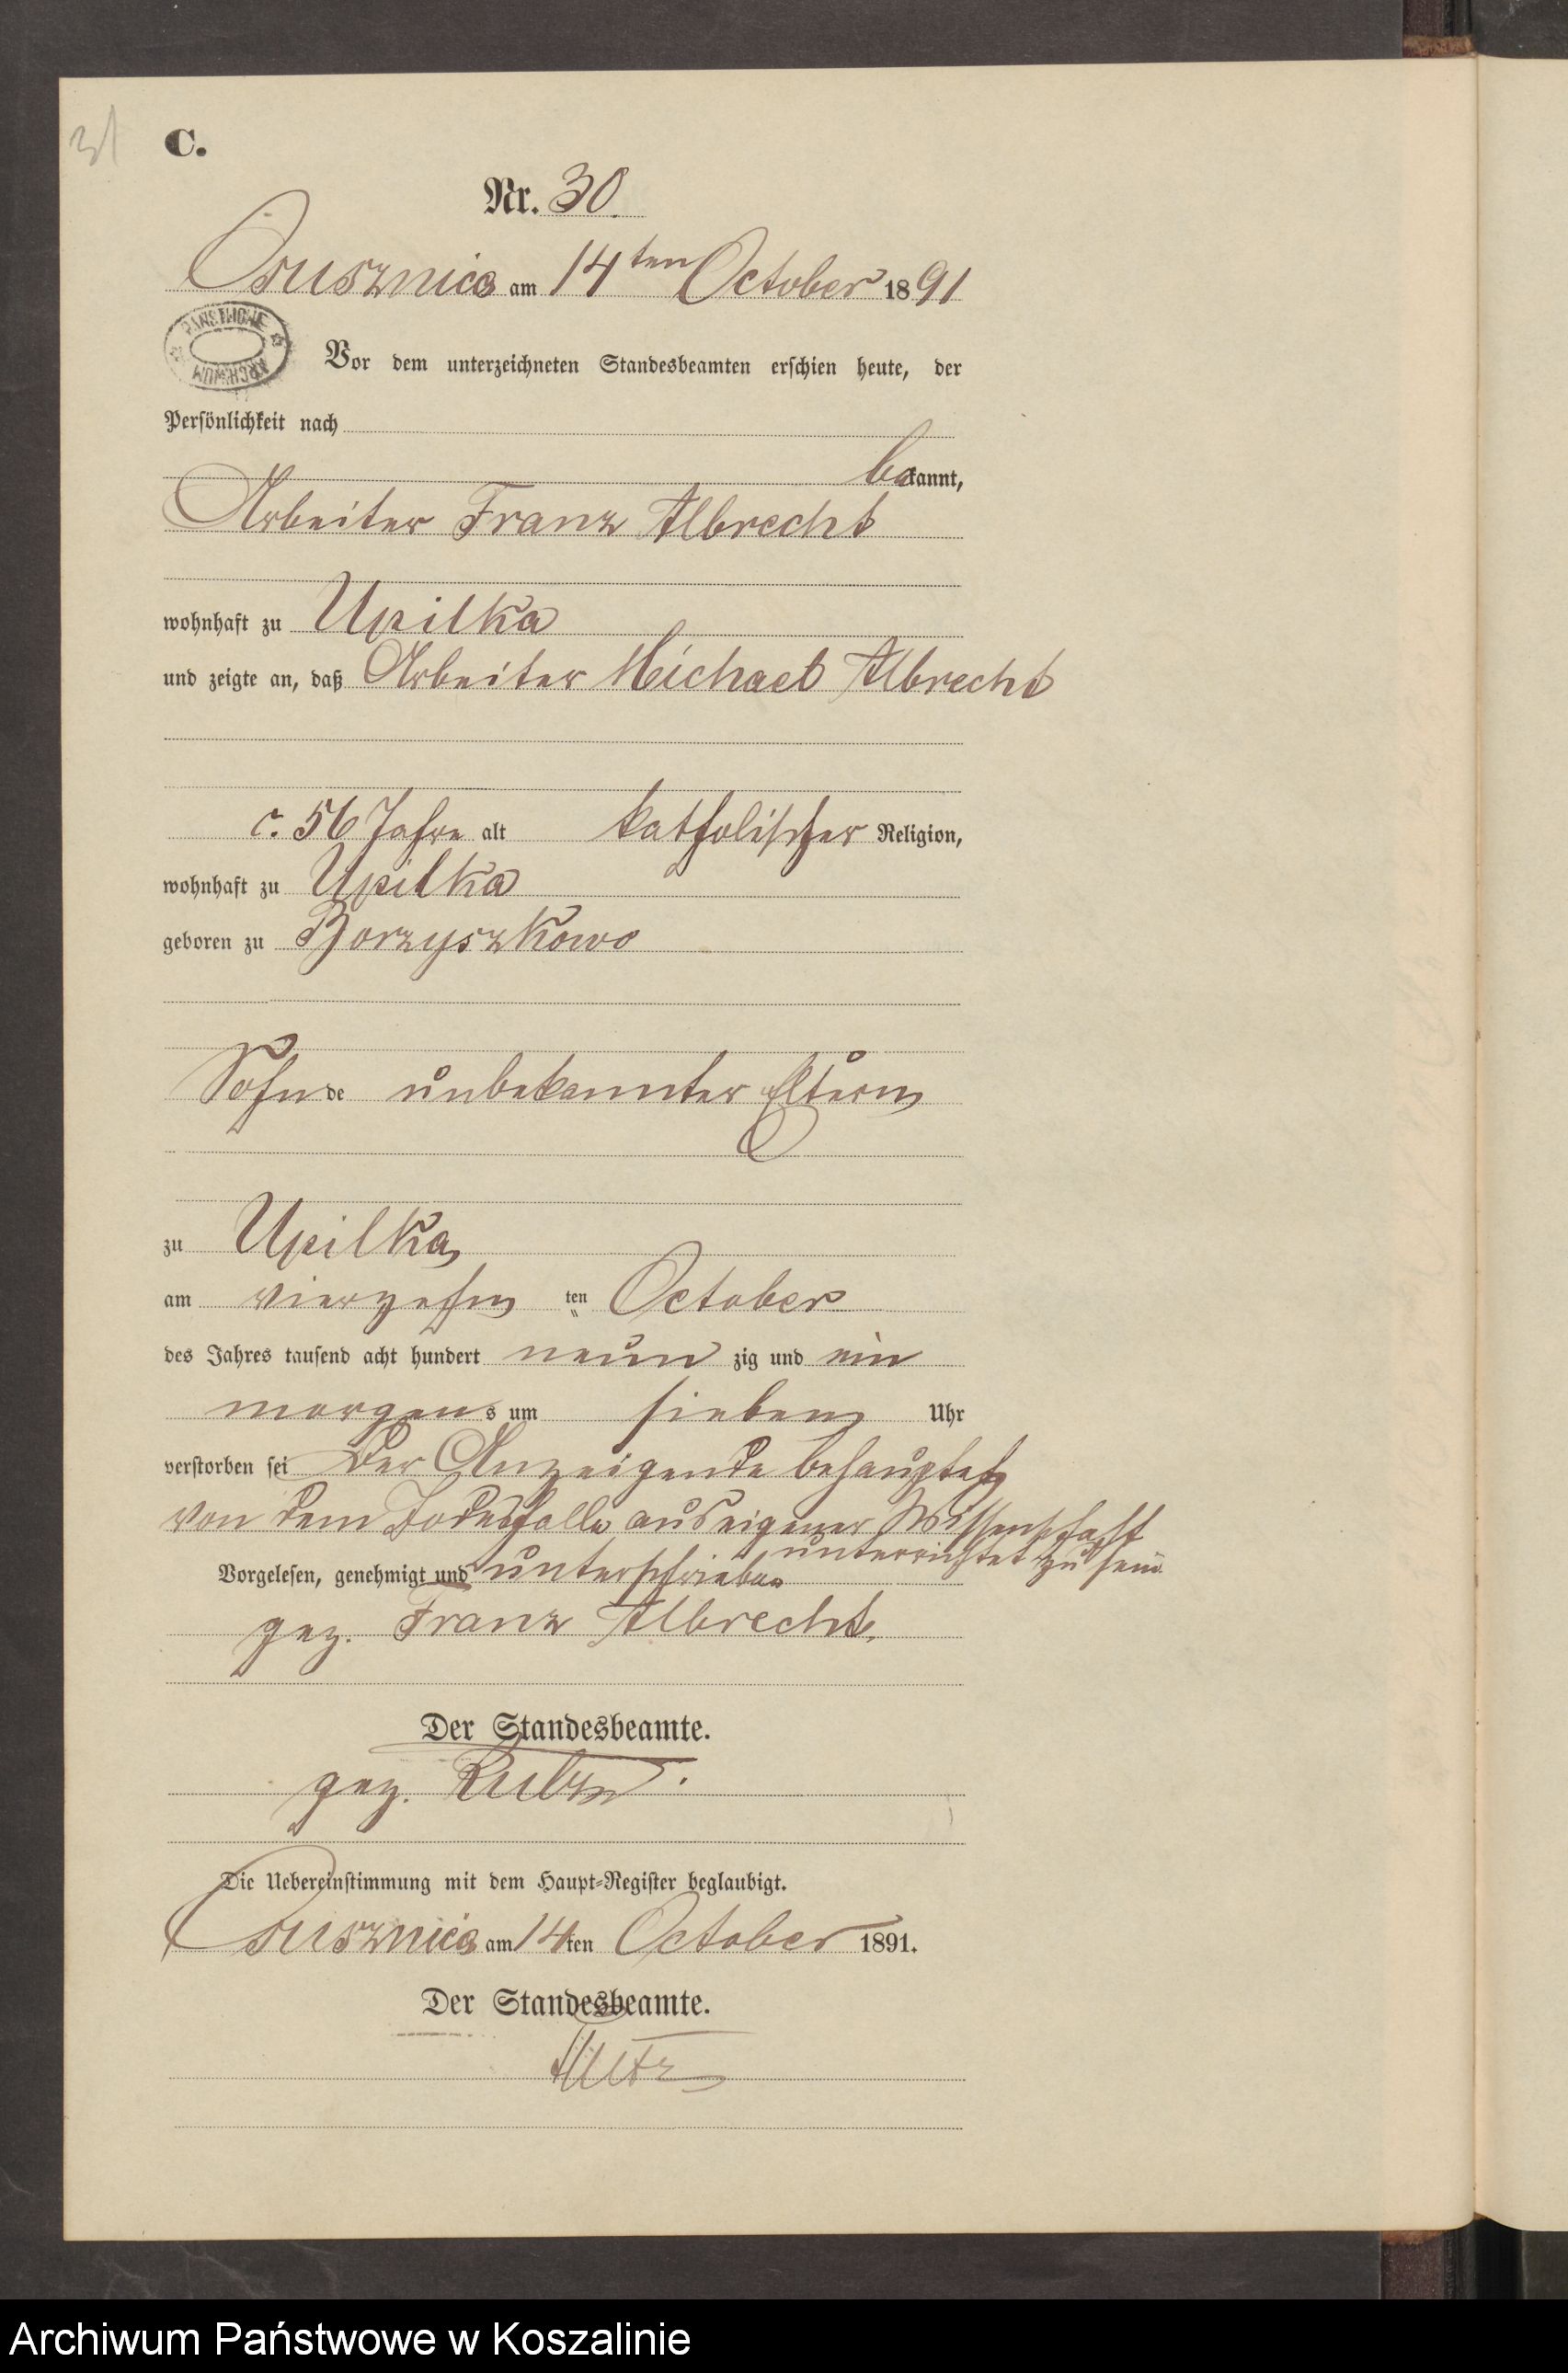 31
C.
Nr. 30.
Osusznica am 14ten October 1891
PANSTWOWE ARCHIWUM
Vor dem unterzeichneten Standesbeamten erschien heute, der
Persönlichkeit nach
bekannt,
Arbeiter Franz Albrecht
wohnhaft zu Upilka
und zeigte an, daß Arbeiter Michael Albrecht
c. 56 Jahre alt katholischer Religion,
wohnhaft zu Upilka
geboren zu Borzyszkowo
Sohn de unbekannter Eltern
zu Upilka
am vierzehn ten October
des Jahres tausend acht hundert neun zig und ein
morgens um sieben Uhr
verstorben sei Der Anzeigende behauptet
von dem Todesfalle aus eigener Wissenschaft
unterrichtet zu sein
Vorgelesen, genehmigt und unterschrieben
gez. Franz Albrecht.
Der Standesbeamte.
gez.
Die Uebereinstimmung mit dem Haupt-Register beglaubigt.
Osusznica am 14ten October 1891.
Der Standesbeamte.
Archiwum Państwowe w Koszalinie